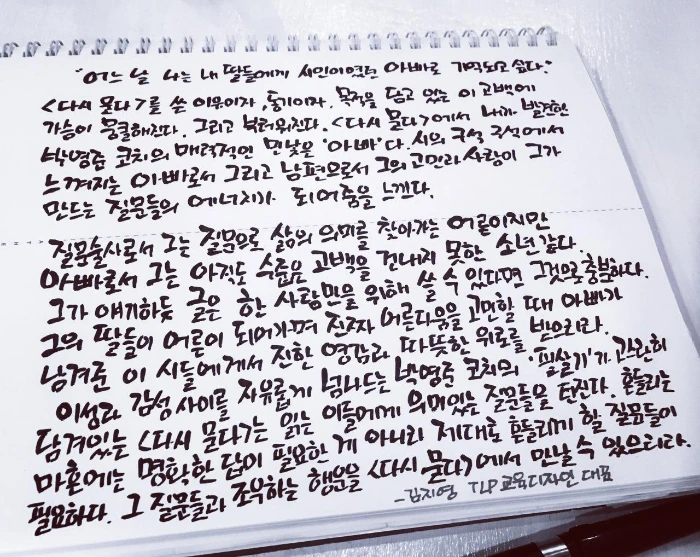 "어느 날 나는 내 딸들에게 시인이었던 아빠로 기억되고 싶다."
<다시 묻다>를 쓴 이유이자, 동기이자, 목적을 담고 있는 이 고백에
가슴이 뭉클해진다. 그리고 부러워진다. <다시 묻다>에서 내가 발견한
박영준 코치의 매력적인 민낯은 '아빠'다. 시의 구석 구석에서
느껴지는 아빠로서 그리고 남편으로서 그의 고민과 사랑이 그가
만드는 질문들의 에너지가 되어줌을 느낀다.
질문술사로서 그는 질문으로 삶의 의미를 찾아가는 어른이지만
아빠로서 그는 아직도 수줍은 고백을 건내지 못한 소년 같다.
그가 얘기하듯 글은 한 사람만을 위해 쓸 수 있다면 그것으로 충분하다.
그의 딸들이 어른이 되어가며 진짜 어른다움을 고민할 때 아빠가
남겨준 이 시들에게서 진한 영감과 따뜻한 위로를 받으리라.
이성과 감성 사이를 자유롭게 넘나드는 박영준 코치의 '필살기'가 고스란히
담겨있는 <다시 묻다>는 읽는 이들에게 의미있는 질문들을 던진다. 흔들리는
마흔에는 명확한 답이 필요한 게 아니라 제대로 흔들리게 할 질문들이
필요하다. 그 질문들과 조우하는 행운을 <다시 묻다>에서 만날 수 있으리라.
-김지영 TLP교육디자인 대표